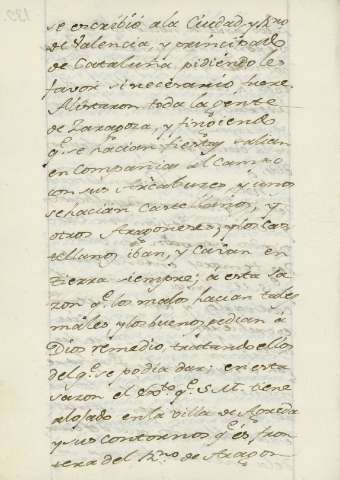 se escribió a la Ciudad y Rno
de Valencia, y principado
de Cataluña pidiendoles
favor si necesario fuere.
Alistaron toda la gente
de Zaragoza, y fingiendo
q.e se hacian fiestas salian
en Compañias al Campo
con sus Arcabuces y unos
se hacian Castellanos, y
otros Aragoneses, y los Cas-
tellanos iban, y Caían en
tierra siempre; a esta sa-
zon q.e los malos hacian tales
males, y los buenos pedian á
Dios remedio, tratando ellos
del q.e se podia dar; en esta
sazon el Exto q.e S. M. tiene
alojado en la villa de Agreda
y sus contornos q.e és fron-
tera del Rno de Aragon